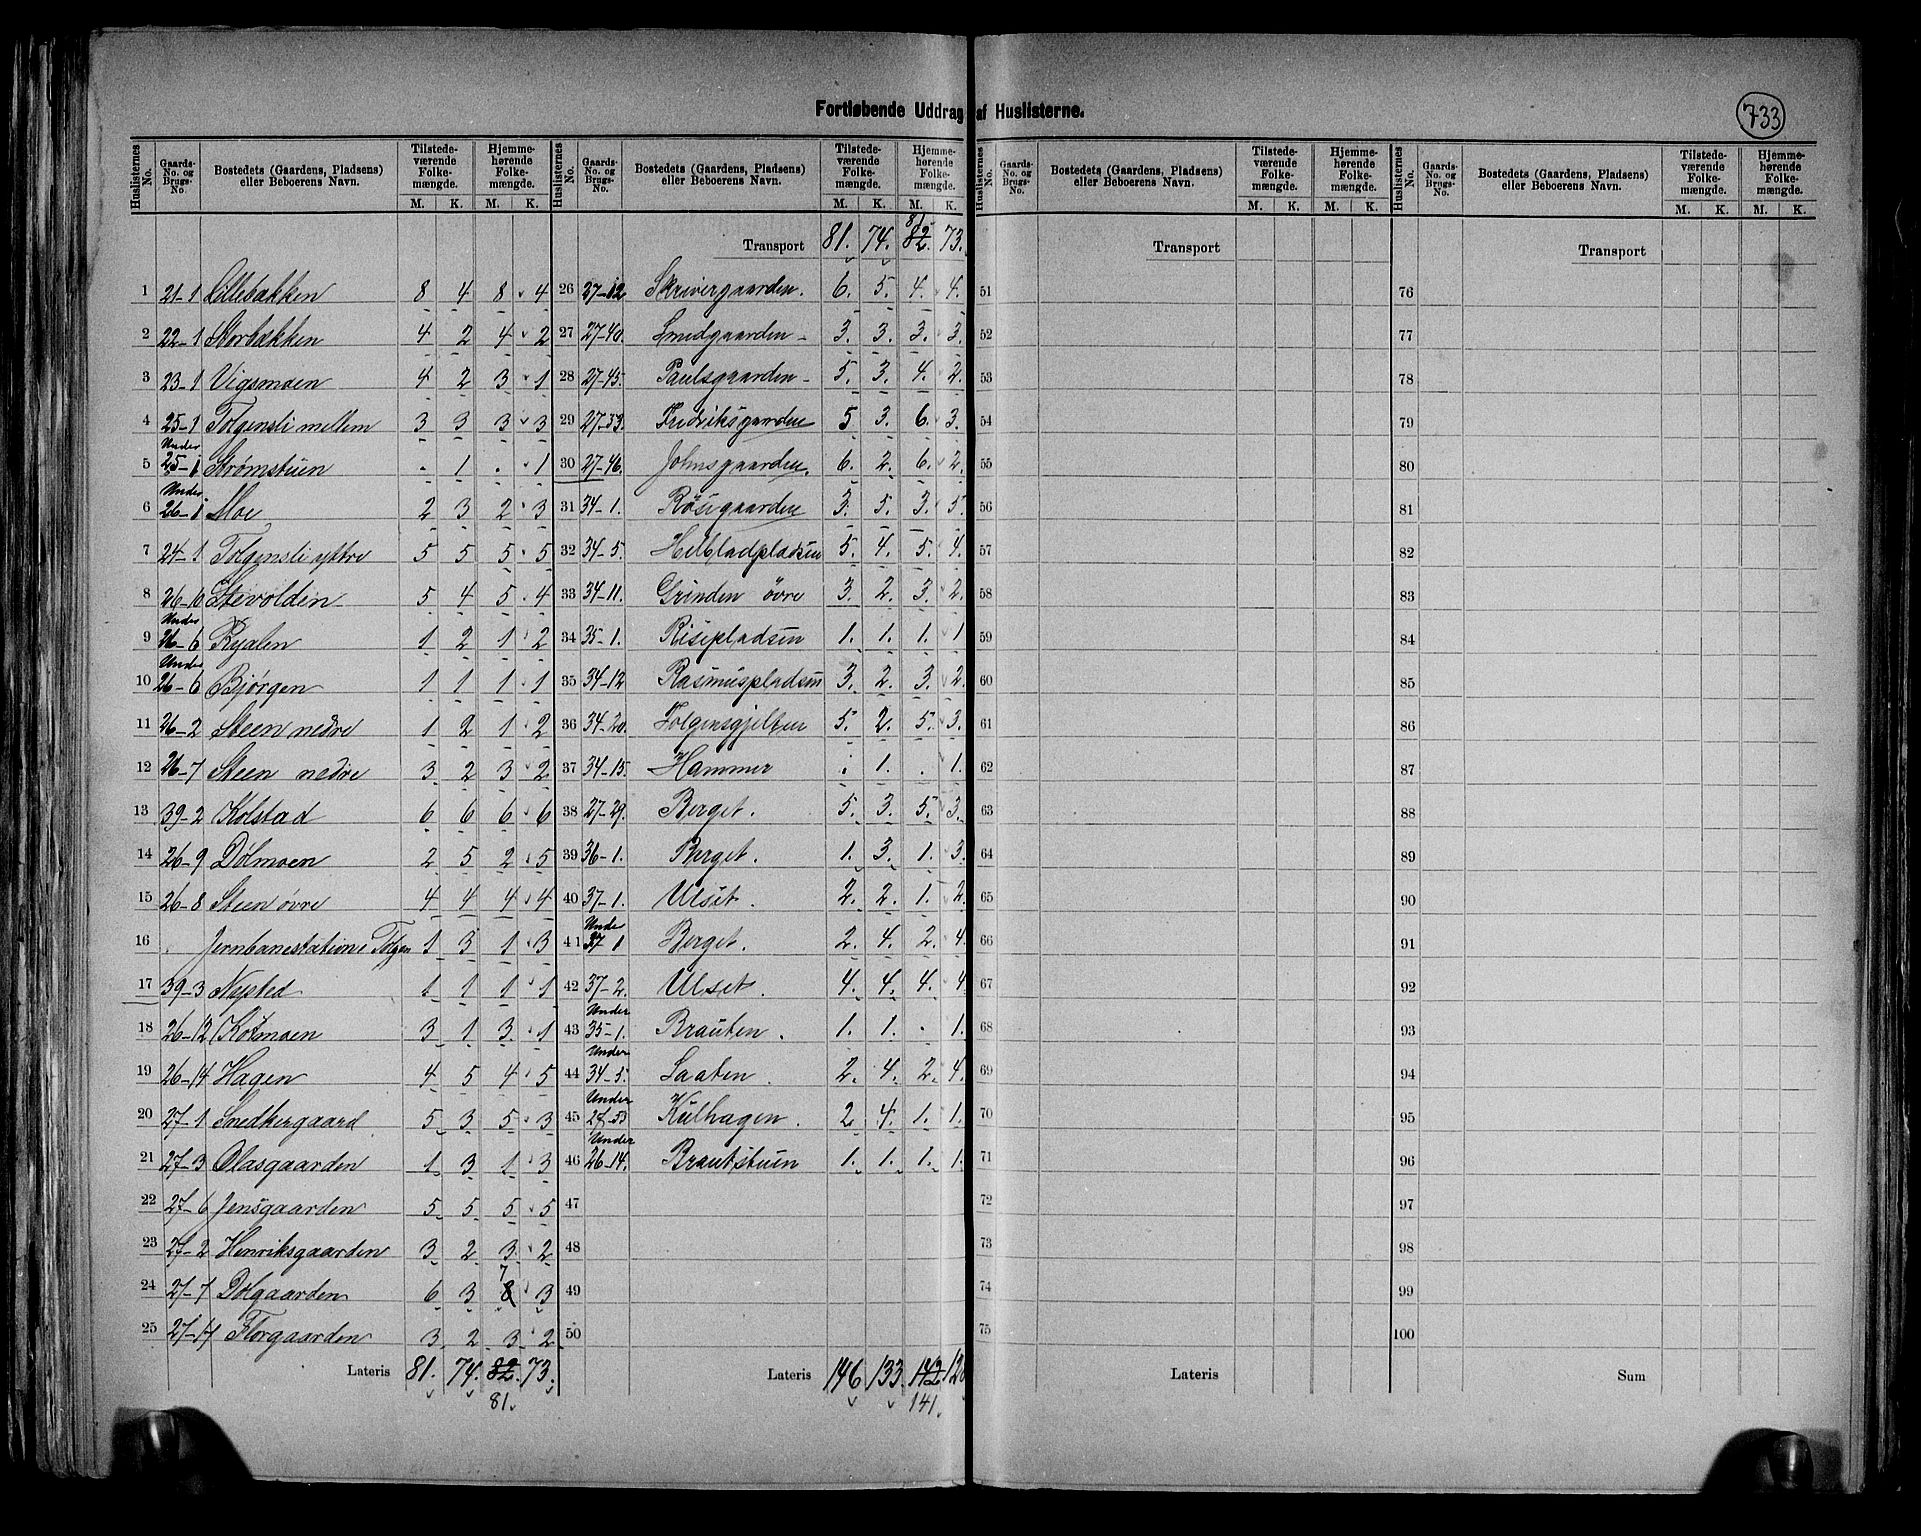 Fortløbende Uddrag af Huslisterne.
733
Huslisternes No. | Gaards-No. og Brugs-No. | Bostedets (Gaardens, Pladsens) eller Beboerens Navn. | Tilstedeværende Folkemængde. M. K. | Hjemmehørende Folkemængde. M. K.
1 21-1 Lillebakken 8 4 8 4
2 22-1 Storbakken 4 2 4 2
3 23-1 Vigsmoen 4 2 3 1
4 25-1 Tolgensli mellem 3 3 3 3
5 Under 25-1 Strømstuen . 1 . 1
6 Under 26-1 Moe 2 3 2 3
7 24-1 Tolgensli yttre 5 5 5 5
8 26-10 Stevolden 5 4 5 4
9 Under 26-6 Ryalen 1 2 1 2
10 Under 26-6 Bjørgen 1 1 1 1
11 26-2 Steen nedre 1 2 1 2
12 26-7 Steen nedre 3 2 3 2
13 39-2 Kolstad 6 6 6 6
14 26-9 Dølmoen 2 5 2 5
15 26-8 Steen øvre 4 4 4 4
16 Jernbanestationen Tolgen 1 3 1 3
17 39-3 Nysted 1 1 1 1
18 26-12 Kotmoen 3 1 3. 1
19 26-14 Hagen 4 5 4 5
20 27-1 Snedkergaard 5 3 5 3
21 27-3 Olasgaarden 1 3 1 3
22 27-6 Jensgaarden 5 5 5 5
23 27-2 Henriksgaarden 3 2 3 2
24 27-7 Dølgaarden 6 3 8 7 3
25 27-14 Florgaarden 3 2 3 2
Lateris 81. 74. 82. 73.
81.
Huslisternes No. | Gaards-No. og Brugs-No. | Bostedets (Gaardens, Pladsens) eller Beboerens Navn. | Tilstedeværende Folkemængde. M. K. | Hjemmehørende Folkemængde. M. K.
81
Transport 81. 74. 82. 73.
26 27-12 Skrivergaarden. 6. 5. 4. 4.
27 27-40. Smedgaarden - 3. 3. 3. 3.
28 27-45. Paulsgaarden - 5. 3. 4. 2.
29 27-33. Fredriksgaarden 5 3. 6. 3.
30 27-46. Johnsgaarden. 6. 2. 6. 2.
31 34-1. Røsegaarden 3. 5. 3. 5.
32 34-5. Helbladpladsen 5. 4. 5. 4.
33 34-11. Grinden øvre 3. 2. 3. 2.
34 35-1. Risepladsen 1. 1. 1. 1
35 34-12 Rasmuspladsen 3. 2. 3. 2.
36 34-20. Tolgensgjelten 5. 2. 5. 3.
37 34-15. Hammer . 1. . 1.
38 27-29. Berget. 5. 3. 5. 3.
39 36-1. Berget. 1. 3. 1. 3.
40 37-1. Ulset. 2. 2. 1. 2.
41 Under 37 1 Berget. 2. 4. 2. 4.
42 37-2. Ulset. 4. 4. 4. 4
43 Under 35-1. Brauten. 1. 1. . 1.
44 Under 34-5. Saaten. 2. 4. 2. 4.
45 Under 27-53 Kulhagen. 2 4. 1. 1.
46 Under 26-14. Brautstuen 1. 1. 1. 1.
47
48
49
50
Lateris 146 133. 142
141.
Huslisternes No. | Gaards-No. og Brugs-No. | Bostedets (Gaardens, Pladsens) eller Beboerens Navn. | Tilstedeværende Folkemængde. M. K. | Hjemmehørende Folkemængde. M. K.
Transport
51
52
53
54
55
56
57
58
59
60
61
62
63
64
65
66
67
68
69
70
71
72
73
74
75
Lateris
Huslisternes No. | Gaards-No. og Brugs-No. | Bostedets (Gaardens, Pladsens) eller Beboerens Navn. | Tilstedeværende Folkemængde. M. K. | Hjemmehørende Folkemængde. M. K.
Transport
76
77
78
79
80
81
82
83
84
85
86
87
88
89
90
91
92
93
94
95
96
97
98
99
100
Sum